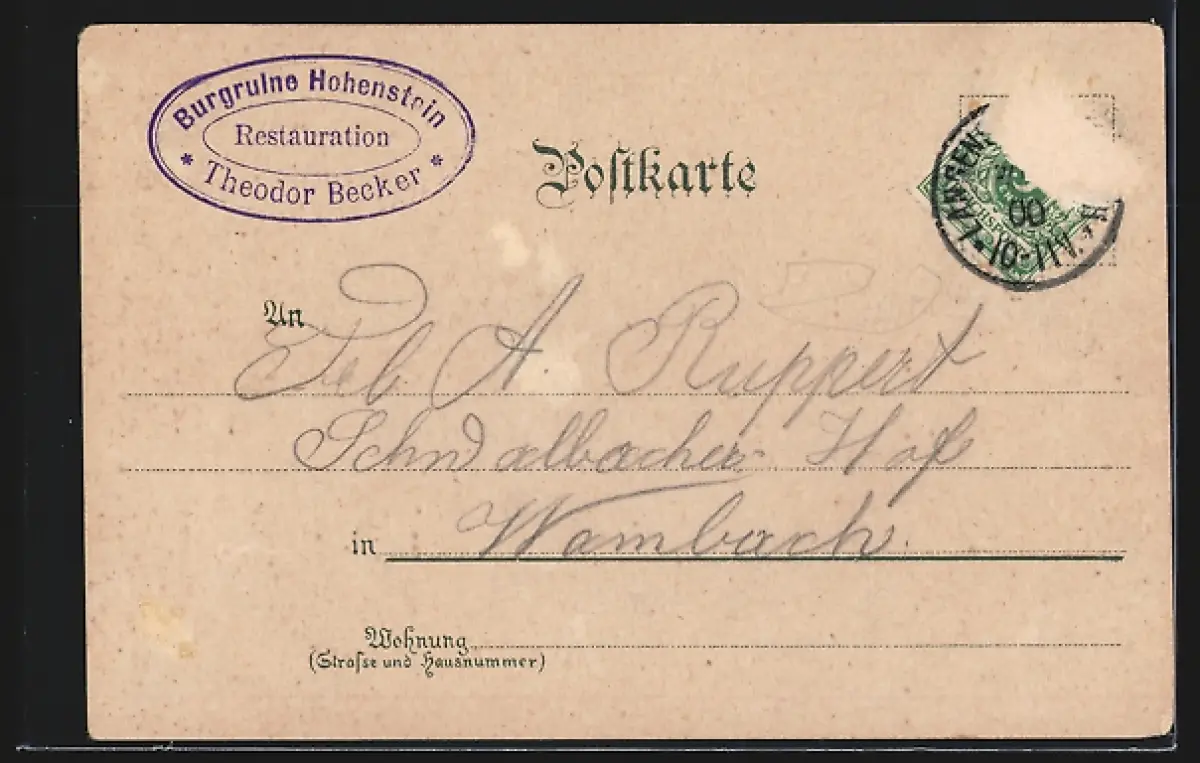 Burgruine Hohenstein
Restauration
* Theodor Becker *
Postkarte
00
10-11V.
An
A. Ruppert
Schwalbacher Hof
in Wambach.
Wohnung
(Strasse und Hausnummer)